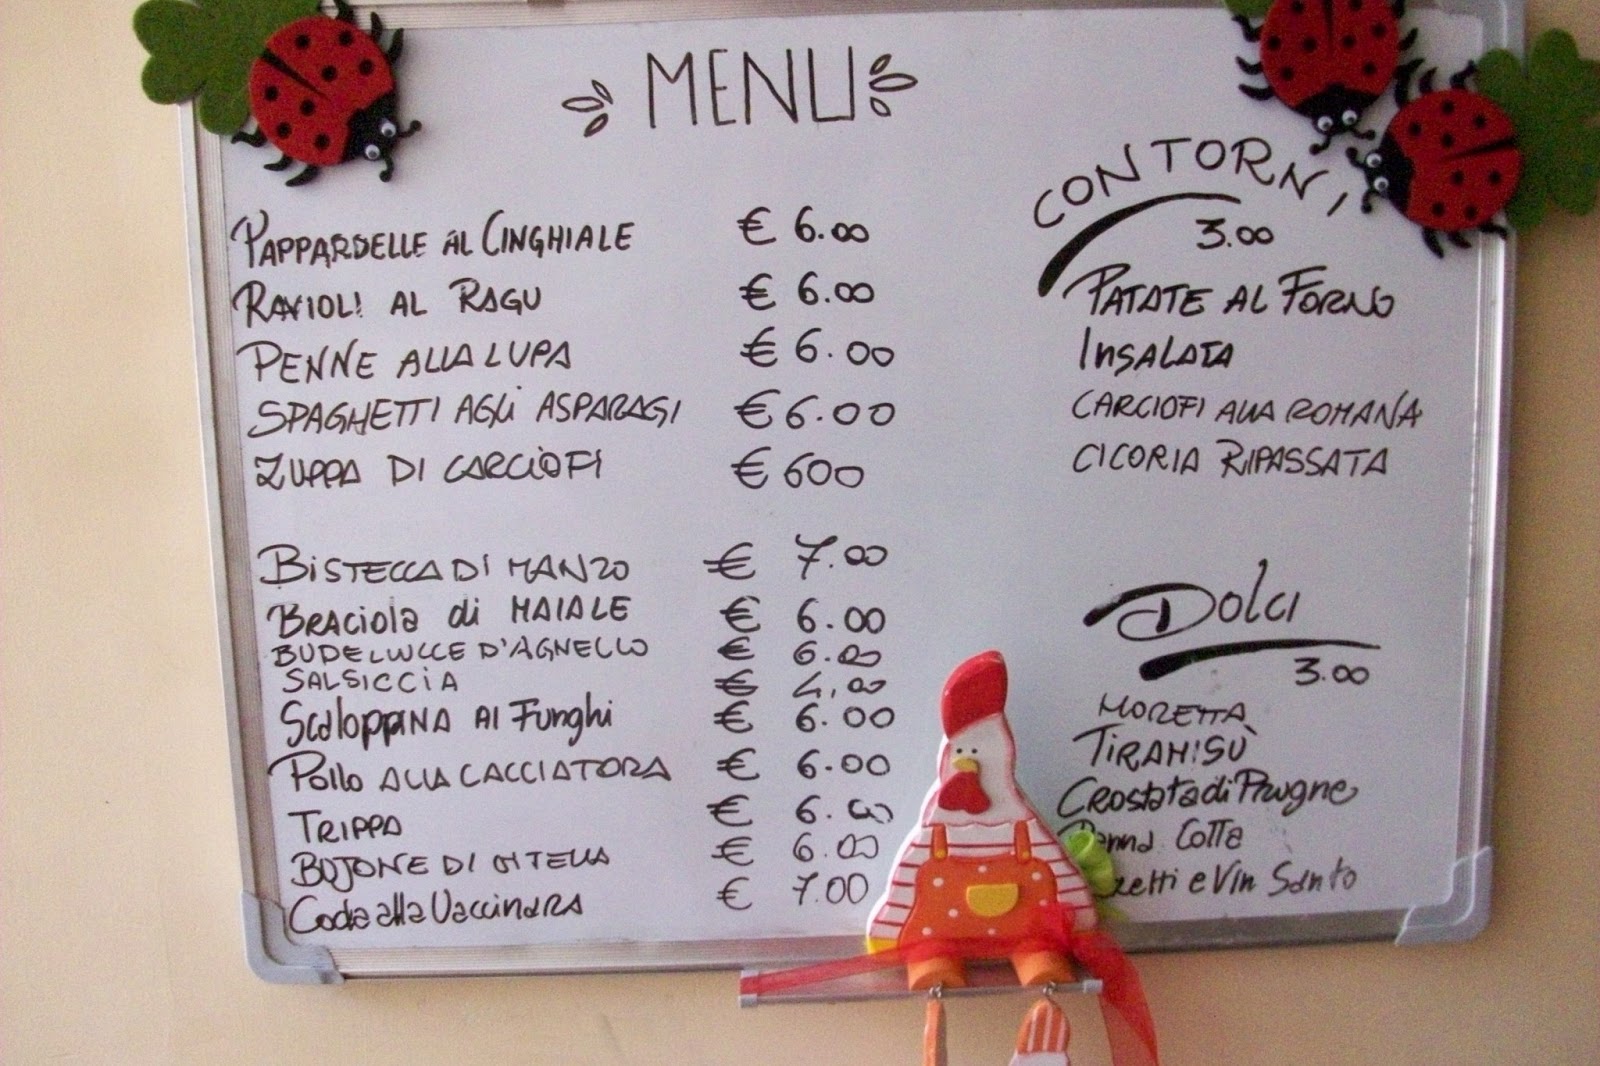 MENU
PAPPARDELLE AL CINGHIALE € 6.00
RAVIOLI AL RAGU € 6.00
PENNE ALLA LUPA € 6.00
SPAGHETTI AGLI ASPARAGI € 6.00
ZUPPA DI CARCIOFI € 600
BISTECCA DI MANZO € 7.00
BRACIOLA di MAIALE € 6.00
BUDELUCCE D'AGNELLO € 6.00
SALSICCIA € 4,00
SCALOPPINA AI FUNGHI € 6.00
POLLO ALLA CACCIATORA € 6.00
TRIPPA € 6.00
DI € 6.00
Coda alla Vaccinara € 7.00
CONTORNI
3.00
PATATE AL FORNO
INSALATA
CARCIOFI ALLA ROMANA
CICORIA RIPASSATA
DOLCI
3.00
MORETTA
TIRAMISÙ
Crostata di Prugne
Panna Cotta
e Vin Santo